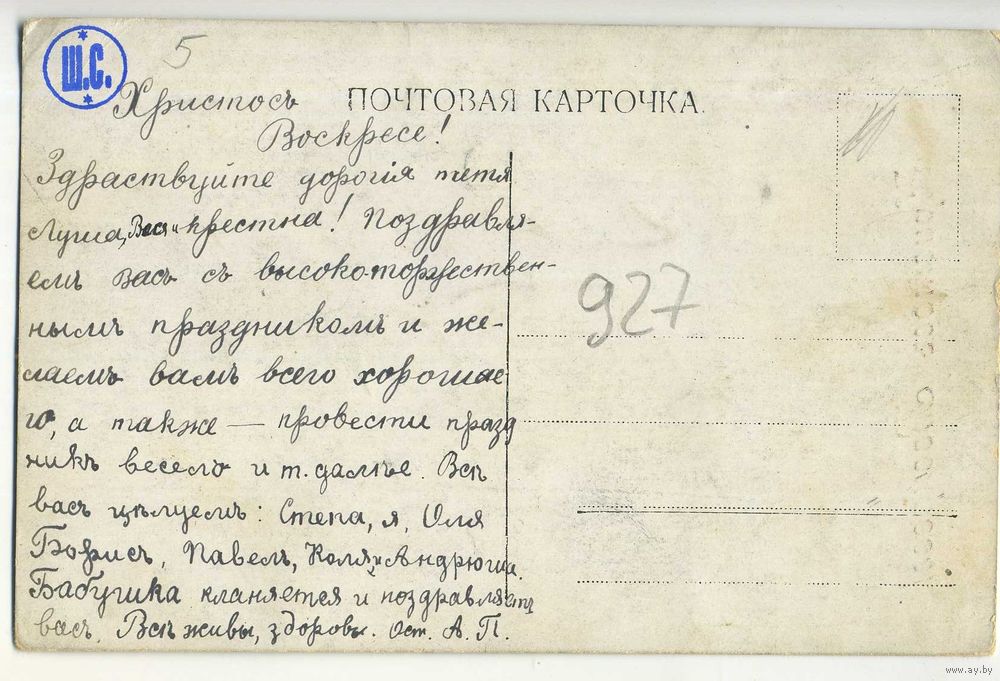 Ш.С.
5
Христосъ
ПОЧТОВАЯ КАРТОЧКА.
Воскресе!
Здраствуйте дорогія тетя
Луша, Вася и крестна! Поздравля-
емъ васъ съ высокоторжествен-
нымъ праздникомъ и же-
лаемъ вамъ всего хорошае
го, а также — провести празд
никъ весело и т. далѣе. Всѣ
васъ цѣлуемъ: Степа, я, Оля
Борисъ, Павелъ, Коля и Андрюша.
Бабушка кланяется и поздравляетъ
васъ. Всѣ живы, здоровы. Ост. А. П.
927
www.ay.by